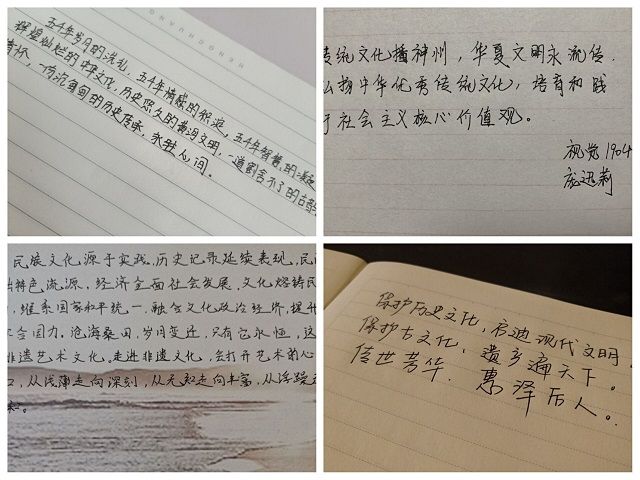 五千年岁月的洗礼，五千年情感的积淀，五千年智慧的凝
辉煌灿烂的中华文化，历史悠久的黄河文明，一道割舍不了的古
的历史传承，永驻人间。
传统文化播神州，华夏文明永流传.
弘扬中华优秀传统文化，培育和践
于社会主义核心价值观。
视觉1904
庞迅莉
民族文化源于实践.历史记录延续表现,民
特色流源、经济全面社会发展.文化熔铸民
，维系国家和平统.一.融会文化政治经济,提升
合国力.沧海桑田,岁月变迁,只有它永恒,这
非遗艺术文化.走进非遗文化,会打开艺术的心
口,从浅薄走向深刻,从无知走向丰富,从浮躁
保护历史文化，启迪现代文明.
保护古文化，遗乡遍天下。
传世芳华.惠泽后人。